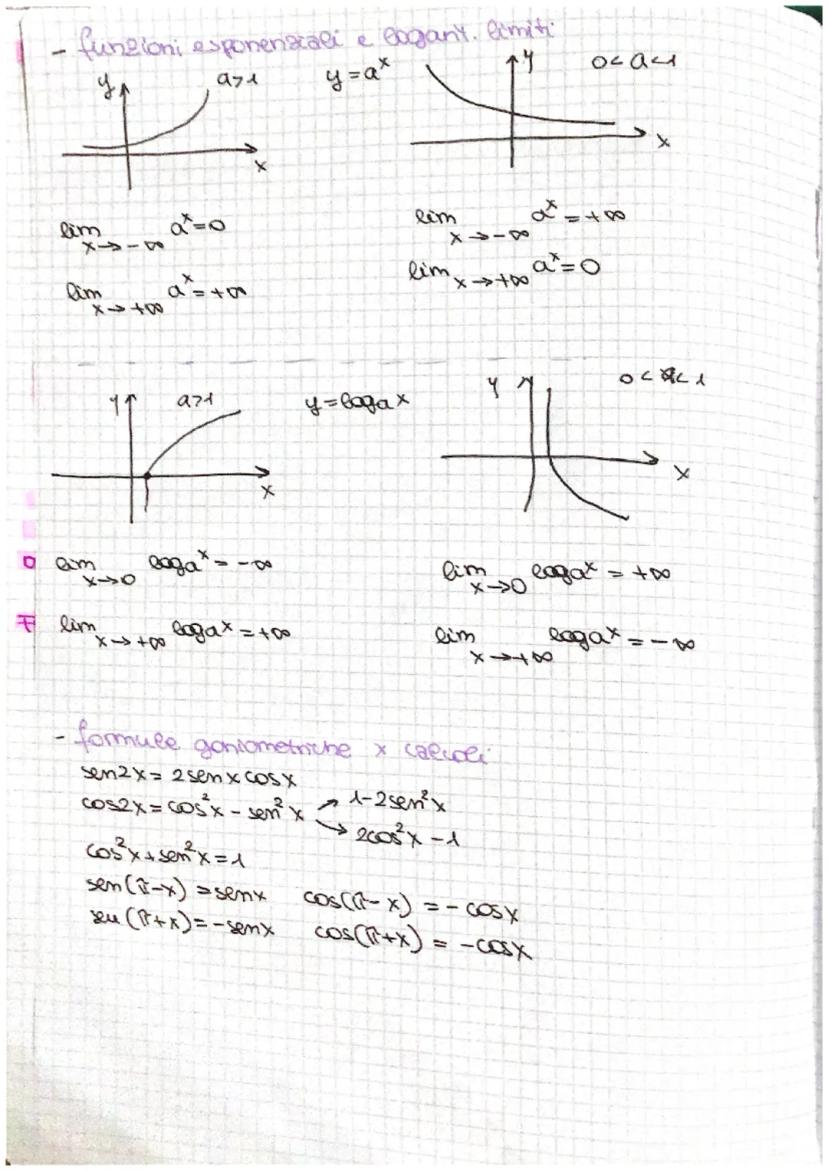 - funzioni esponenziali e logarit. limiti
y a>1 y=aˣ y 0<a<1
x x
lim x→-∞ aˣ=0 lim x→-∞ aˣ=+∞
lim x→+∞ aˣ=+∞ lim x→+∞ aˣ=0
y a>1 y=logax y 0<a<1
x x
lim x→0 logaˣ=-∞ lim x→0 logaˣ=+∞
lim x→+∞ logaˣ=+∞ lim x→+∞ logaˣ=-∞
- formule goniometriche x calcoli
sen2x=2senxcosx
cos2x=cos²x-sen²x ↗ 1-2sen²x
↘ 2cos²x-1
cos²x+sen²x=1
sen(π-x)=senx cos(π-x)=-cosx
sen(π+x)=-senx cos(π+x)=-cosx